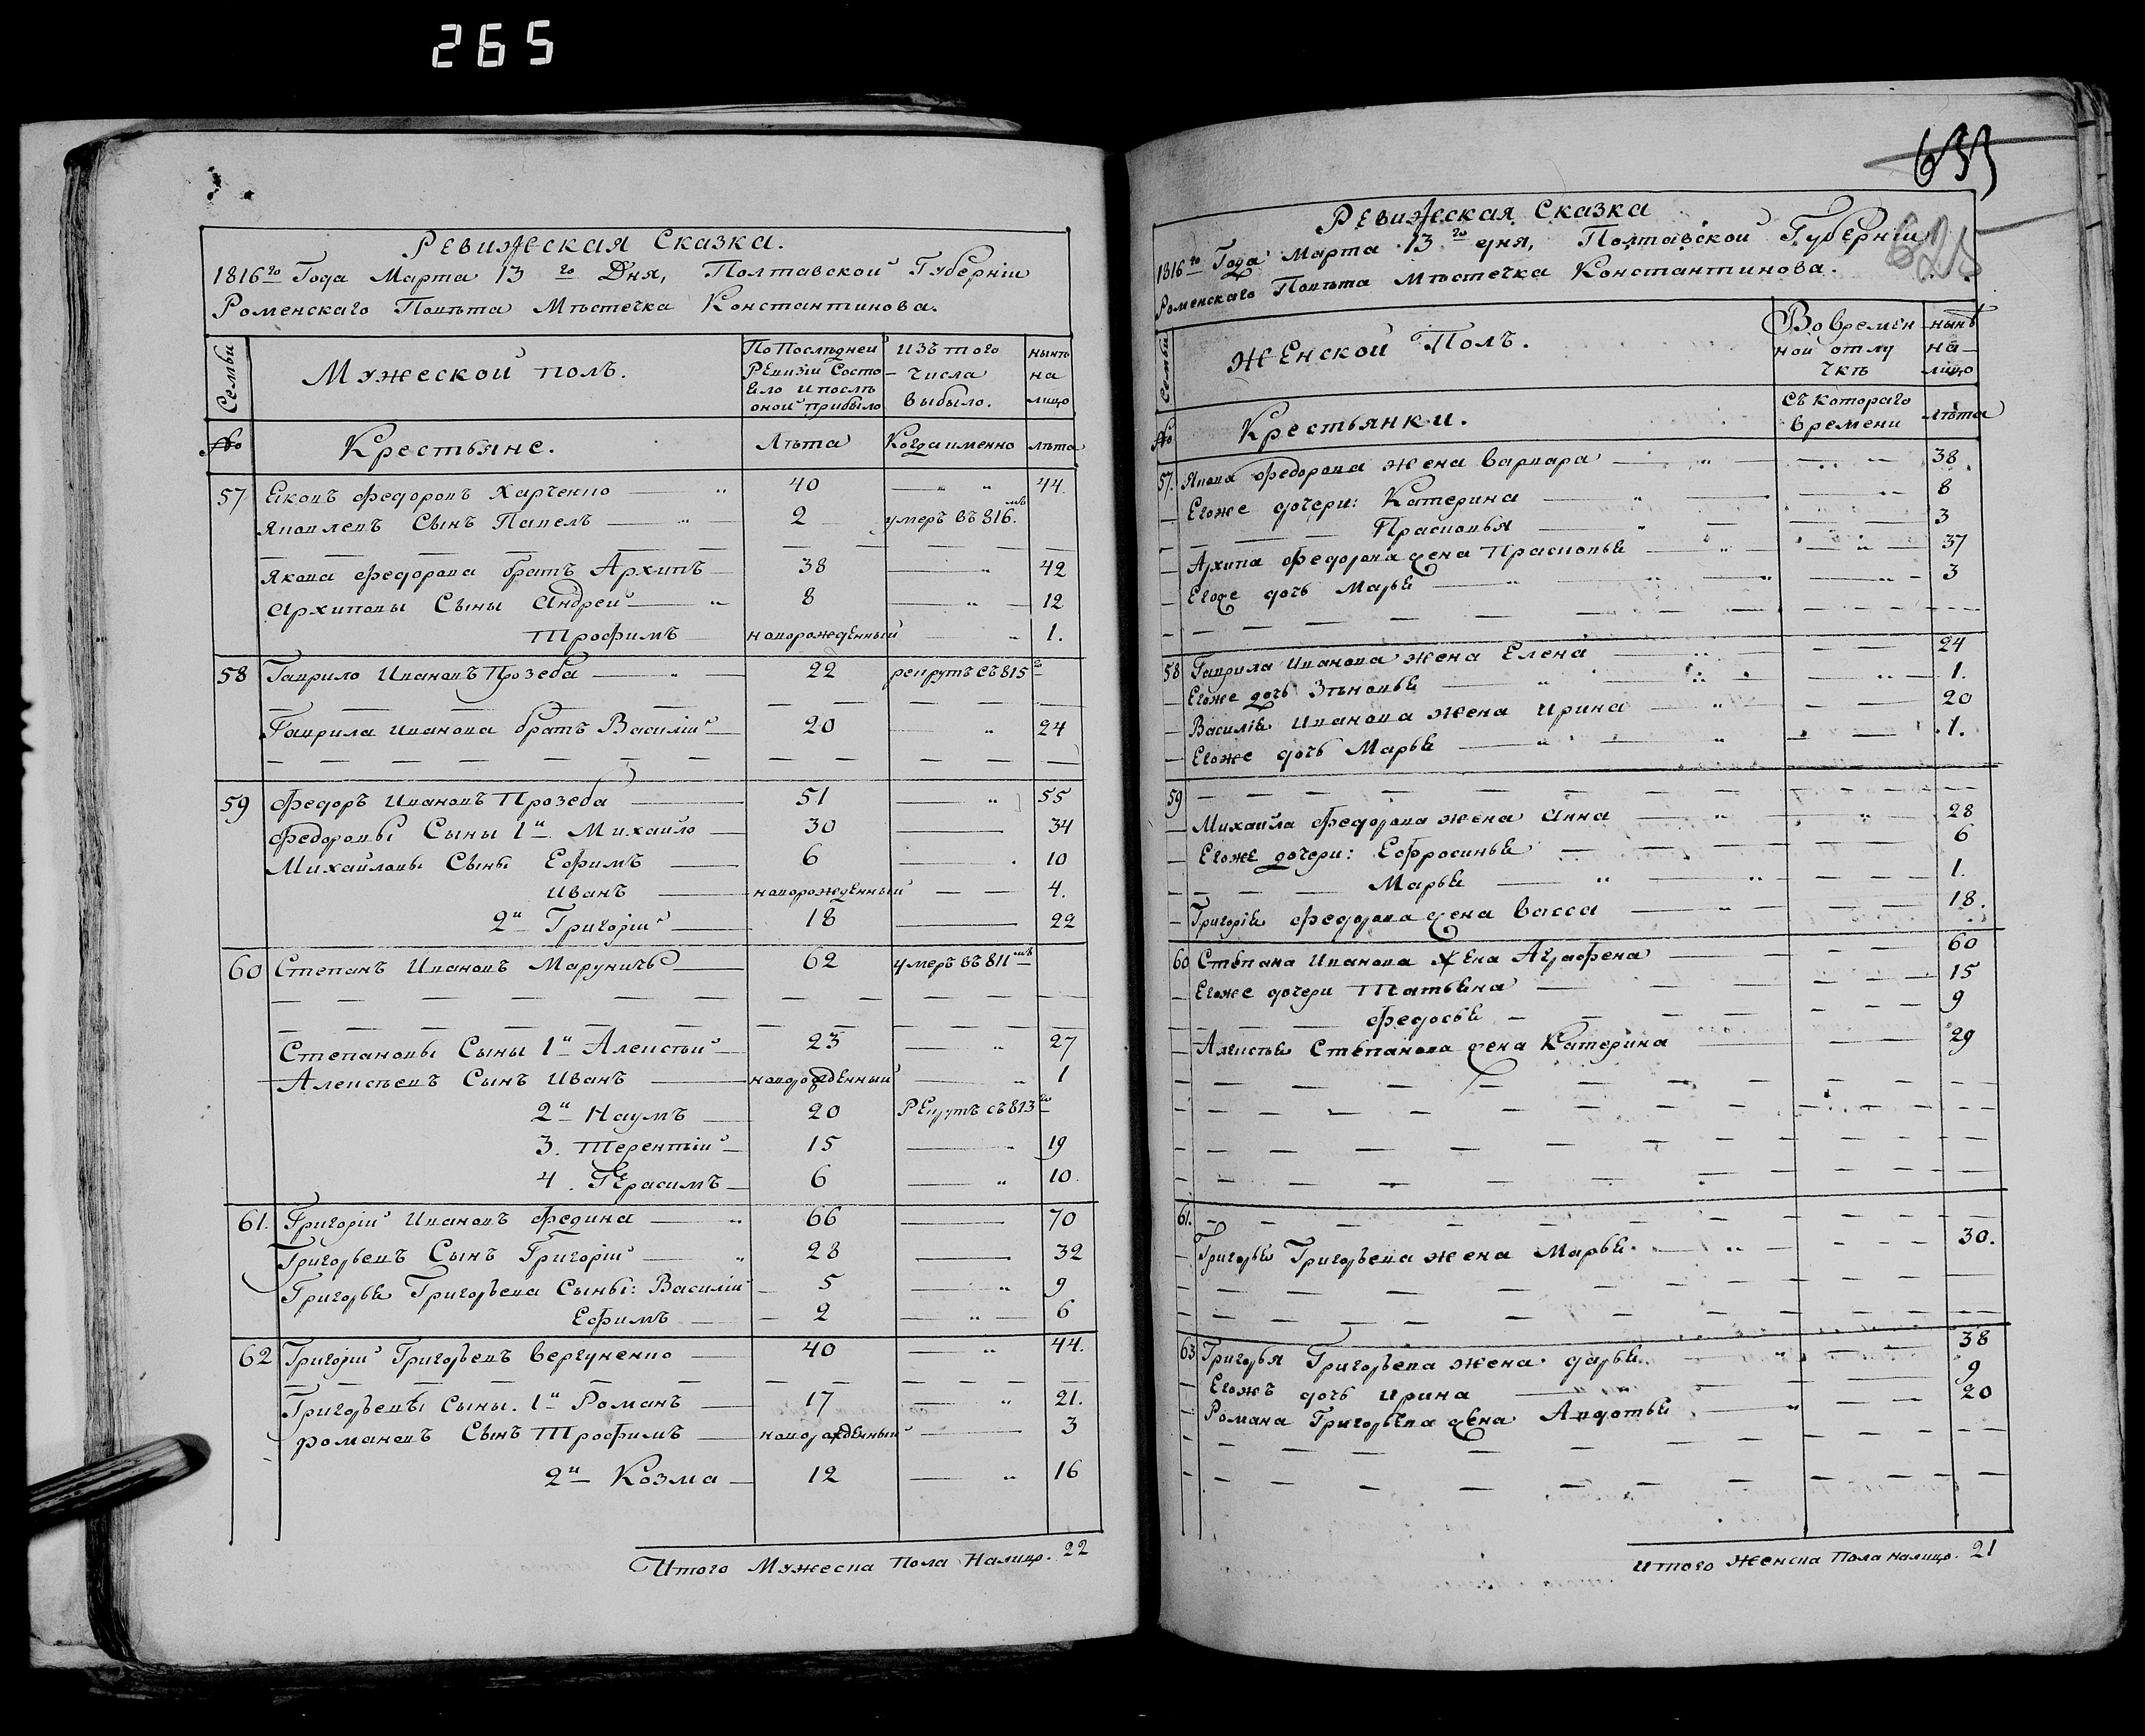 265
Ревижская Сказка.
1816го Года Марта 13го Дня, Полтавской Губерніи
Роменскаго Повѣта Мѣстечка Константинова.
Семьи
Мужеской полъ.
По Послѣдней Ревизіи Состояло и послѣ оной прибыло
Изъ того числа выбыло.
нынѣ на лицо
№
Крестьяне.
Лѣта
Когда именно
лѣта
57 Яковъ Федоровъ Харченко 40 44.
Яковлевъ Сынъ Павелъ 2 умеръ въ 816.мъ
Якова Федорова братъ Архипъ 38 42
Архиповы Сыны Андрей 8 12
Трофимъ новорожденный 1.
58 Гаврило Ивановъ Прозеба 22 рекрутъ съ 815го
Гаврила Иванова братъ Василій 20 24
59 Федоръ Ивановъ Прозеба 51 55
Федоровы Сыны 1й Михайло 30 34
Михайловы Сыны Ефимъ 6 10
Иванъ новорожденный 4.
2й Григорій 18 22
60 Степанъ Ивановъ Маруничъ 62 умеръ въ 811мъ
Степановы Сыны 1й Алексѣй 23 27
Алексѣевъ Сынъ Иванъ новорожденный 1
2й Наумъ 20 Рекрутъ съ 813го
3. Терентій 15 19
4. Герасимъ 6 10.
61. Григорій Ивановъ Федина 66 70
Григорьевъ Сынъ Григорій 28 32
Григорья Григорьева Сыны: Василій 5 9
Ефимъ 2 6
62 Григорій Григорьевъ Вергуненко 40 44.
Григорьевы Сыны. 1й Романъ 17 21.
Романовъ Сынъ Трофимъ новорожденный 3
2й Козма 12 16
Итого Мужеска Пола Налицо. 22
Ревижская Сказка
1816го Года Марта 13го дня, Полтавской Губерніи
Роменскаго Повѣта Мѣстечка Константинова.
Семьи
Женской Полъ.
Во времен ной отлу чкѣ
нынѣ на лицо
№
Крестьянки.
съ котораго времени
лѣта
57. Якова Федорова жена Варвара 38
Егоже дочери: Катерина 8
Прасковья 3
Архипа Федорова жена Прасковья 37
Егоже дочь Марья 3
58 Гаврила Иванова жена Елена 24
Егоже дочь Зѣновья 1.
Василія Иванова жена Ирина 20
Егоже дочь Марья 1.
59
Михайла Федорова жена Анна 28
Егоже дочери: Ефросинья 6
Марья 1.
Григорія Федорова жена Васса 18.
60 Степана Иванова жена Аграфена 60
Егоже дочери Татьяна 15
Федосья 9
Алексѣя Степанова жена Катерина 29
61.
Григорья Григорьева жена Марья 30.
63 Григорья Григорьева жена Дарья 38
Егожъ дочь Ирина 9
Романа Григорьева жена Авдотья 20
Итого Женска Пола налицо. 21